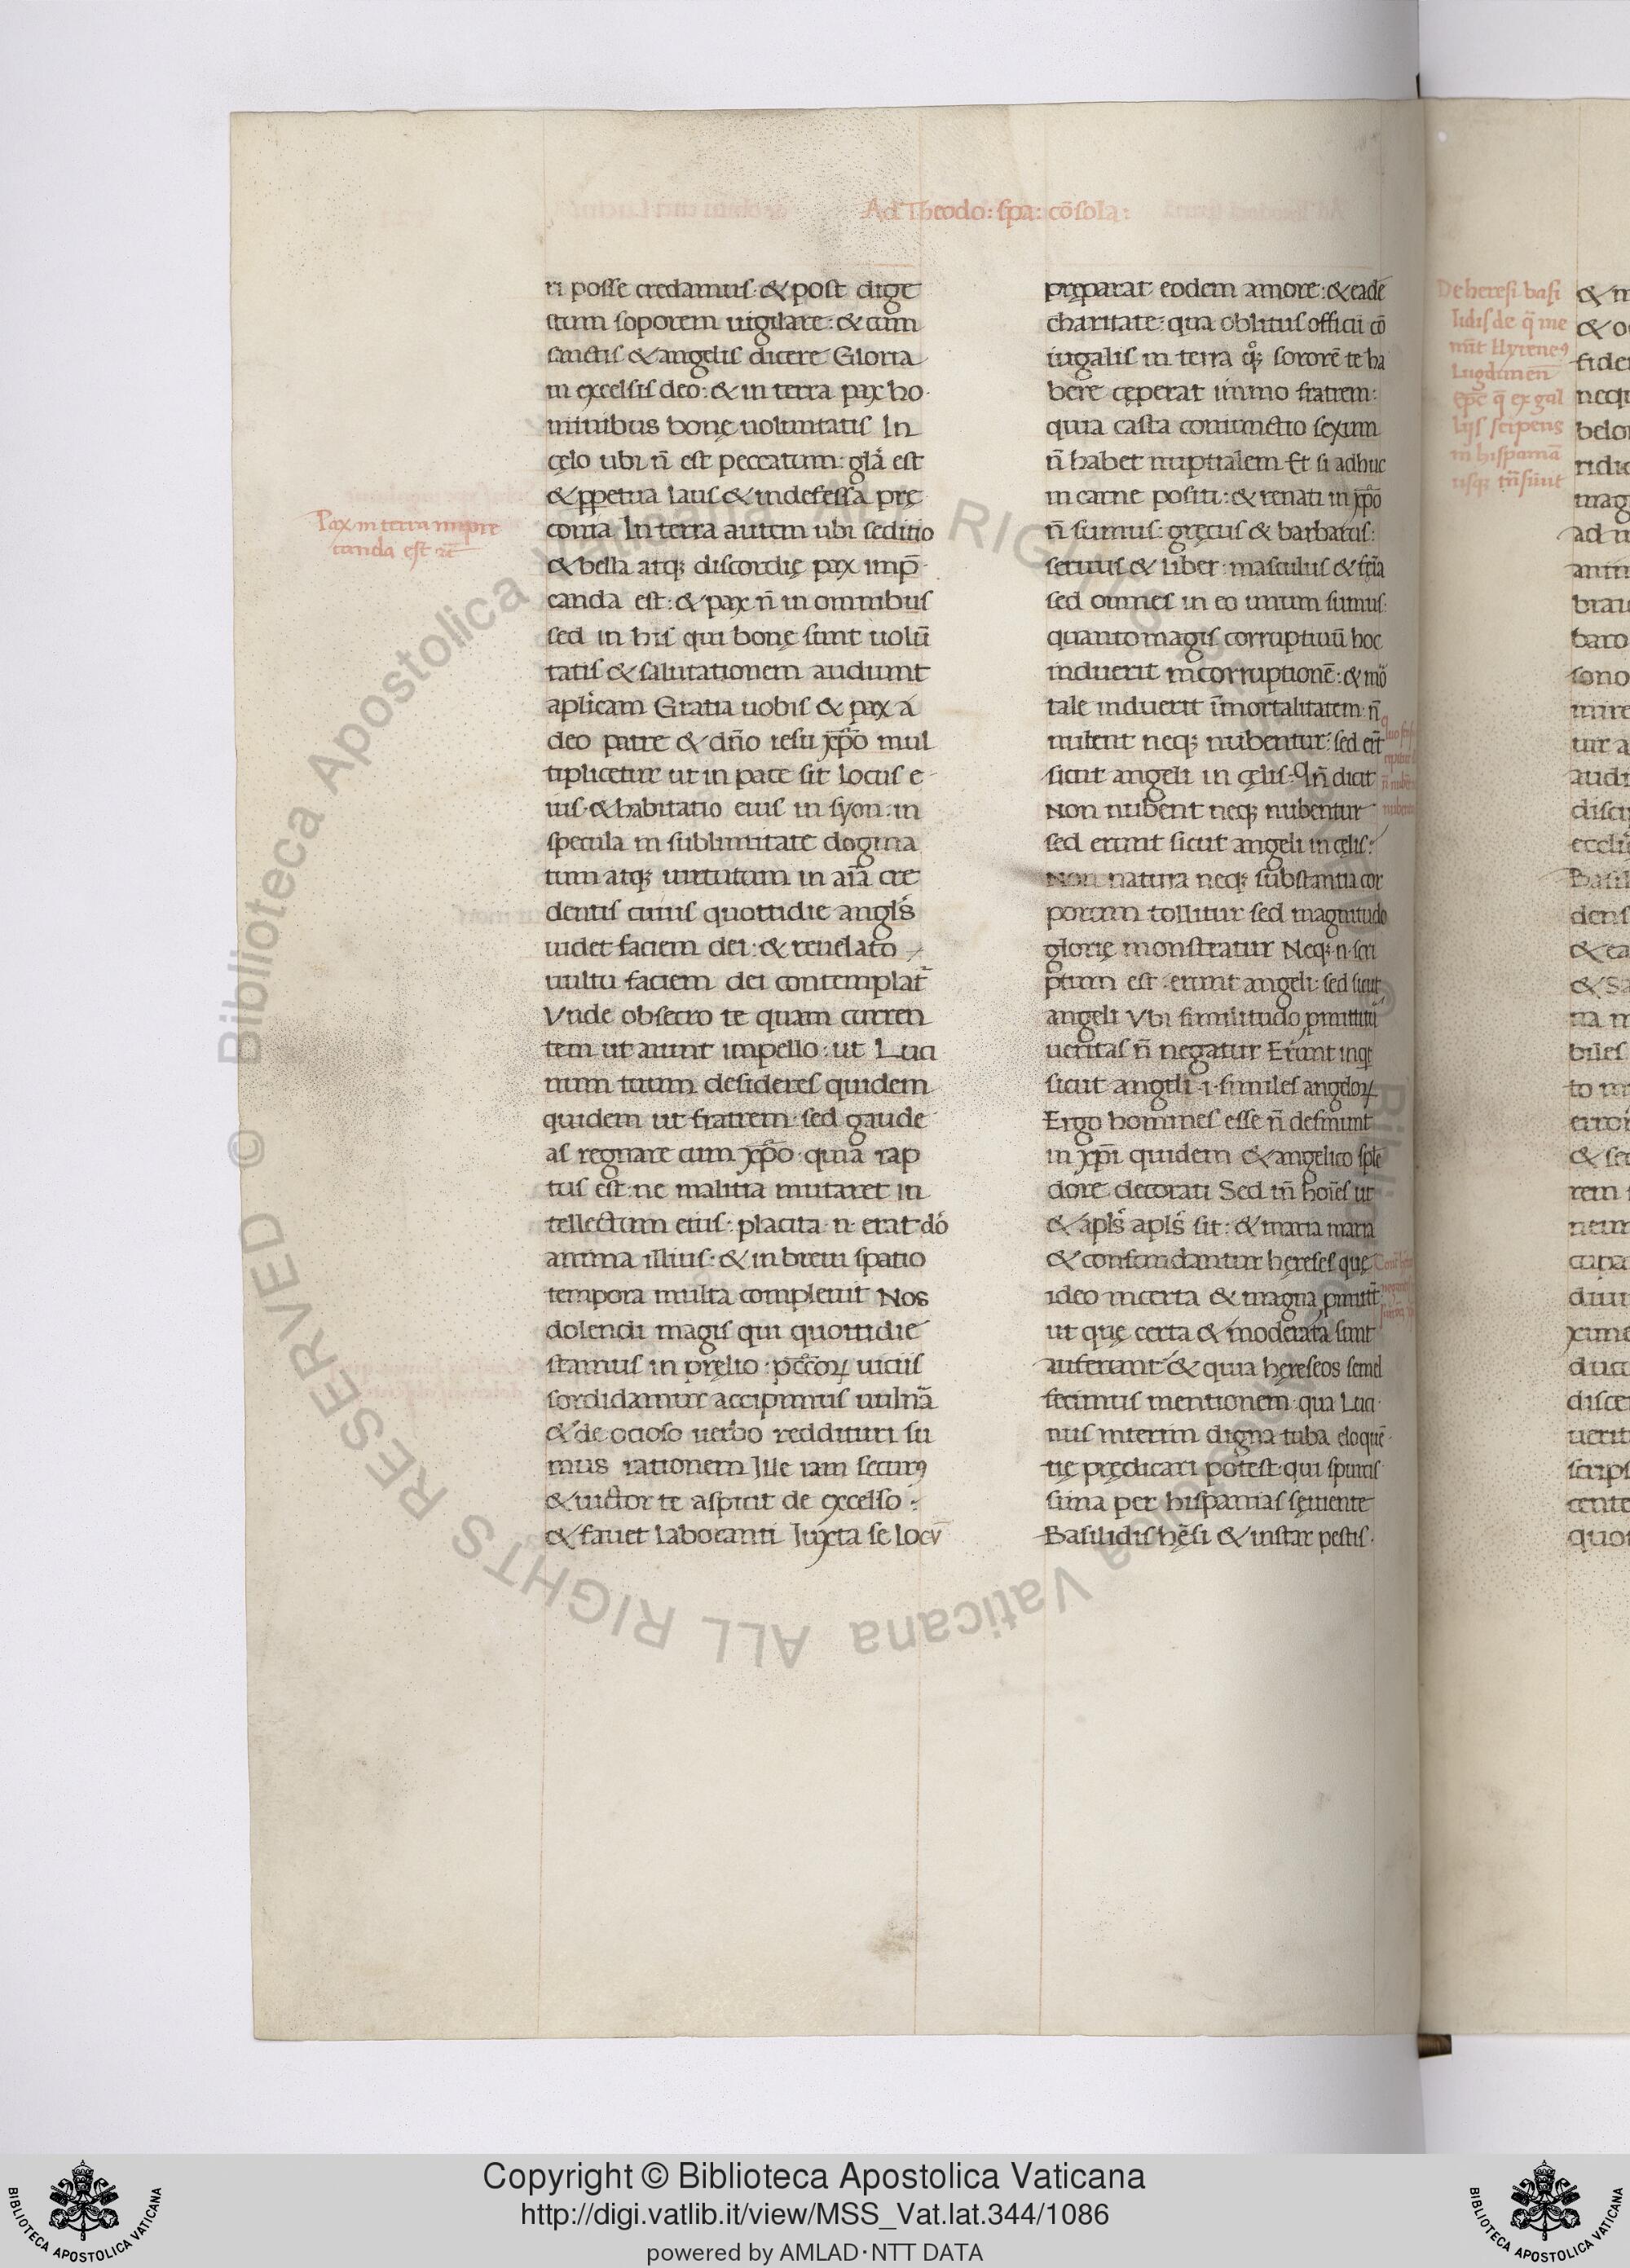 Ad Theodo: spa: cōsola:
ri posse credamus: & post dige
stum soporem uigilare: & cum
sanctis & angelis dicere Gloria
in excelsis deo: & in terra pax ho
minibus bonę uoluntatis In
cęlo ubi n̄ est peccatum: glā est
& ꝑpetua laus & indefessa prę
conia In terra autem ubi seditio
& bella atq; discordię pax imp̄
canda est: & pax n̄ in omnibus
sed in his qui bonę sunt uolū
tatis & salutationem audiunt
aplicam Gratia uobis & pax a
deo patre & dn̄o iesu xp̄o mul
tiplicetur ut in pace sit locus e
ius & habitatio eius in syon: in
specula in sublimitate dogma
tum atq; uirtutum in aīa cre
dentis cuius quottidie angl̄s
uidet faciem dei: & reuelato
uultu faciem dei contemplat̄
Vnde obsecro te quam curren
tem ut aiunt impello: ut Luci
num tuum desideres quidem
quidem ut fratrem: sed gaude
as regnare cum xp̄o: quia rap
tus est: ne malitia mutaret in
tellectum eius: placita .n. erat dō
anima illius: & in breui spatio
tempora multa compleuit Nos
dolendi magis qui quottidie
stamus in pręlio: pc̄coꝝ uiciis
sordidamur accipimus uulnā
& de ocioso uerbo reddituri su
mus rationem Ille iam securꝰ
& uictor te aspicit de excelso:
& fauet laboranti Iuxta se locū
Pax in terra impre
canda est rc̄
pręparat eodem amore: & eadē
charitate: qua oblitus officii cō
iugalis in terra qͦq; sororē te ha
bere cęperat immo fratrem:
quia casta coniunctio sexum
n̄ habet nuptialem Et si adhuc
in carne positi: & renati in xp̄o
n̄ sumus: gręcus & barbarus:
seruus & liber: masculus & fęīa
sed omnes in eo unum sumus:
quanto magis corruptiuū hoc
induerit incorruptionē: & mō
tale induerit īmortalitatem n̄
nubent neq; nubentur: sed er̄t
sicut angeli in cęlis: Qn̄ dicit
Non nubent neq; nubentur
sed erunt sicut angeli in cęlis:
Non natura neq; substantia cor
porum tollitur sed magnitudo
glorię monstratur Neq; .n. scri
ptum est: erunt angeli: sed sicut
angeli Vbi similitudo ꝓmittit̄
ueritas n̄ negatur Erunt inqt
sicut angeli .i. similes angeloꝝ
Ergo homines esse n̄ desinunt
in xp̄i quidem & angelico splē
dore decorati Sed tn̄ hoīes ut
& apl̄s apl̄s sit: & maria maria
& confundantur hęreses quę
ideo incerta & magna ꝓmitt̄t
ut quę certa & moderata sunt
auferant & quia hęreseos semel
fecimus mentionem: qua Luci
nus interim digna tuba eloquē
tię prędicari potest: qui spurcis
sima per hispanias sęuiente
Basilidis hęsi & instar pestis.
De heresi basi
lidis de q̄ me
mīt Ilyreneꝰ
Lugdunen̄
epc̄ q̄ ex gal
lijs serpens
in hispaniā
usq; tn̄sīuit
Copyright © Biblioteca Apostolica Vaticana
http://digi.vatlib.it/view/MSS_Vat.lat.344/1086
powered by AMLAD·NTT DATA
BIBLIOTECA APOSTOLICA VATICANA
BIBLIOTECA APOSTOLICA VATICANA
© Biblioteca Apostolica Vaticana ALL RIGHTS RESERVED